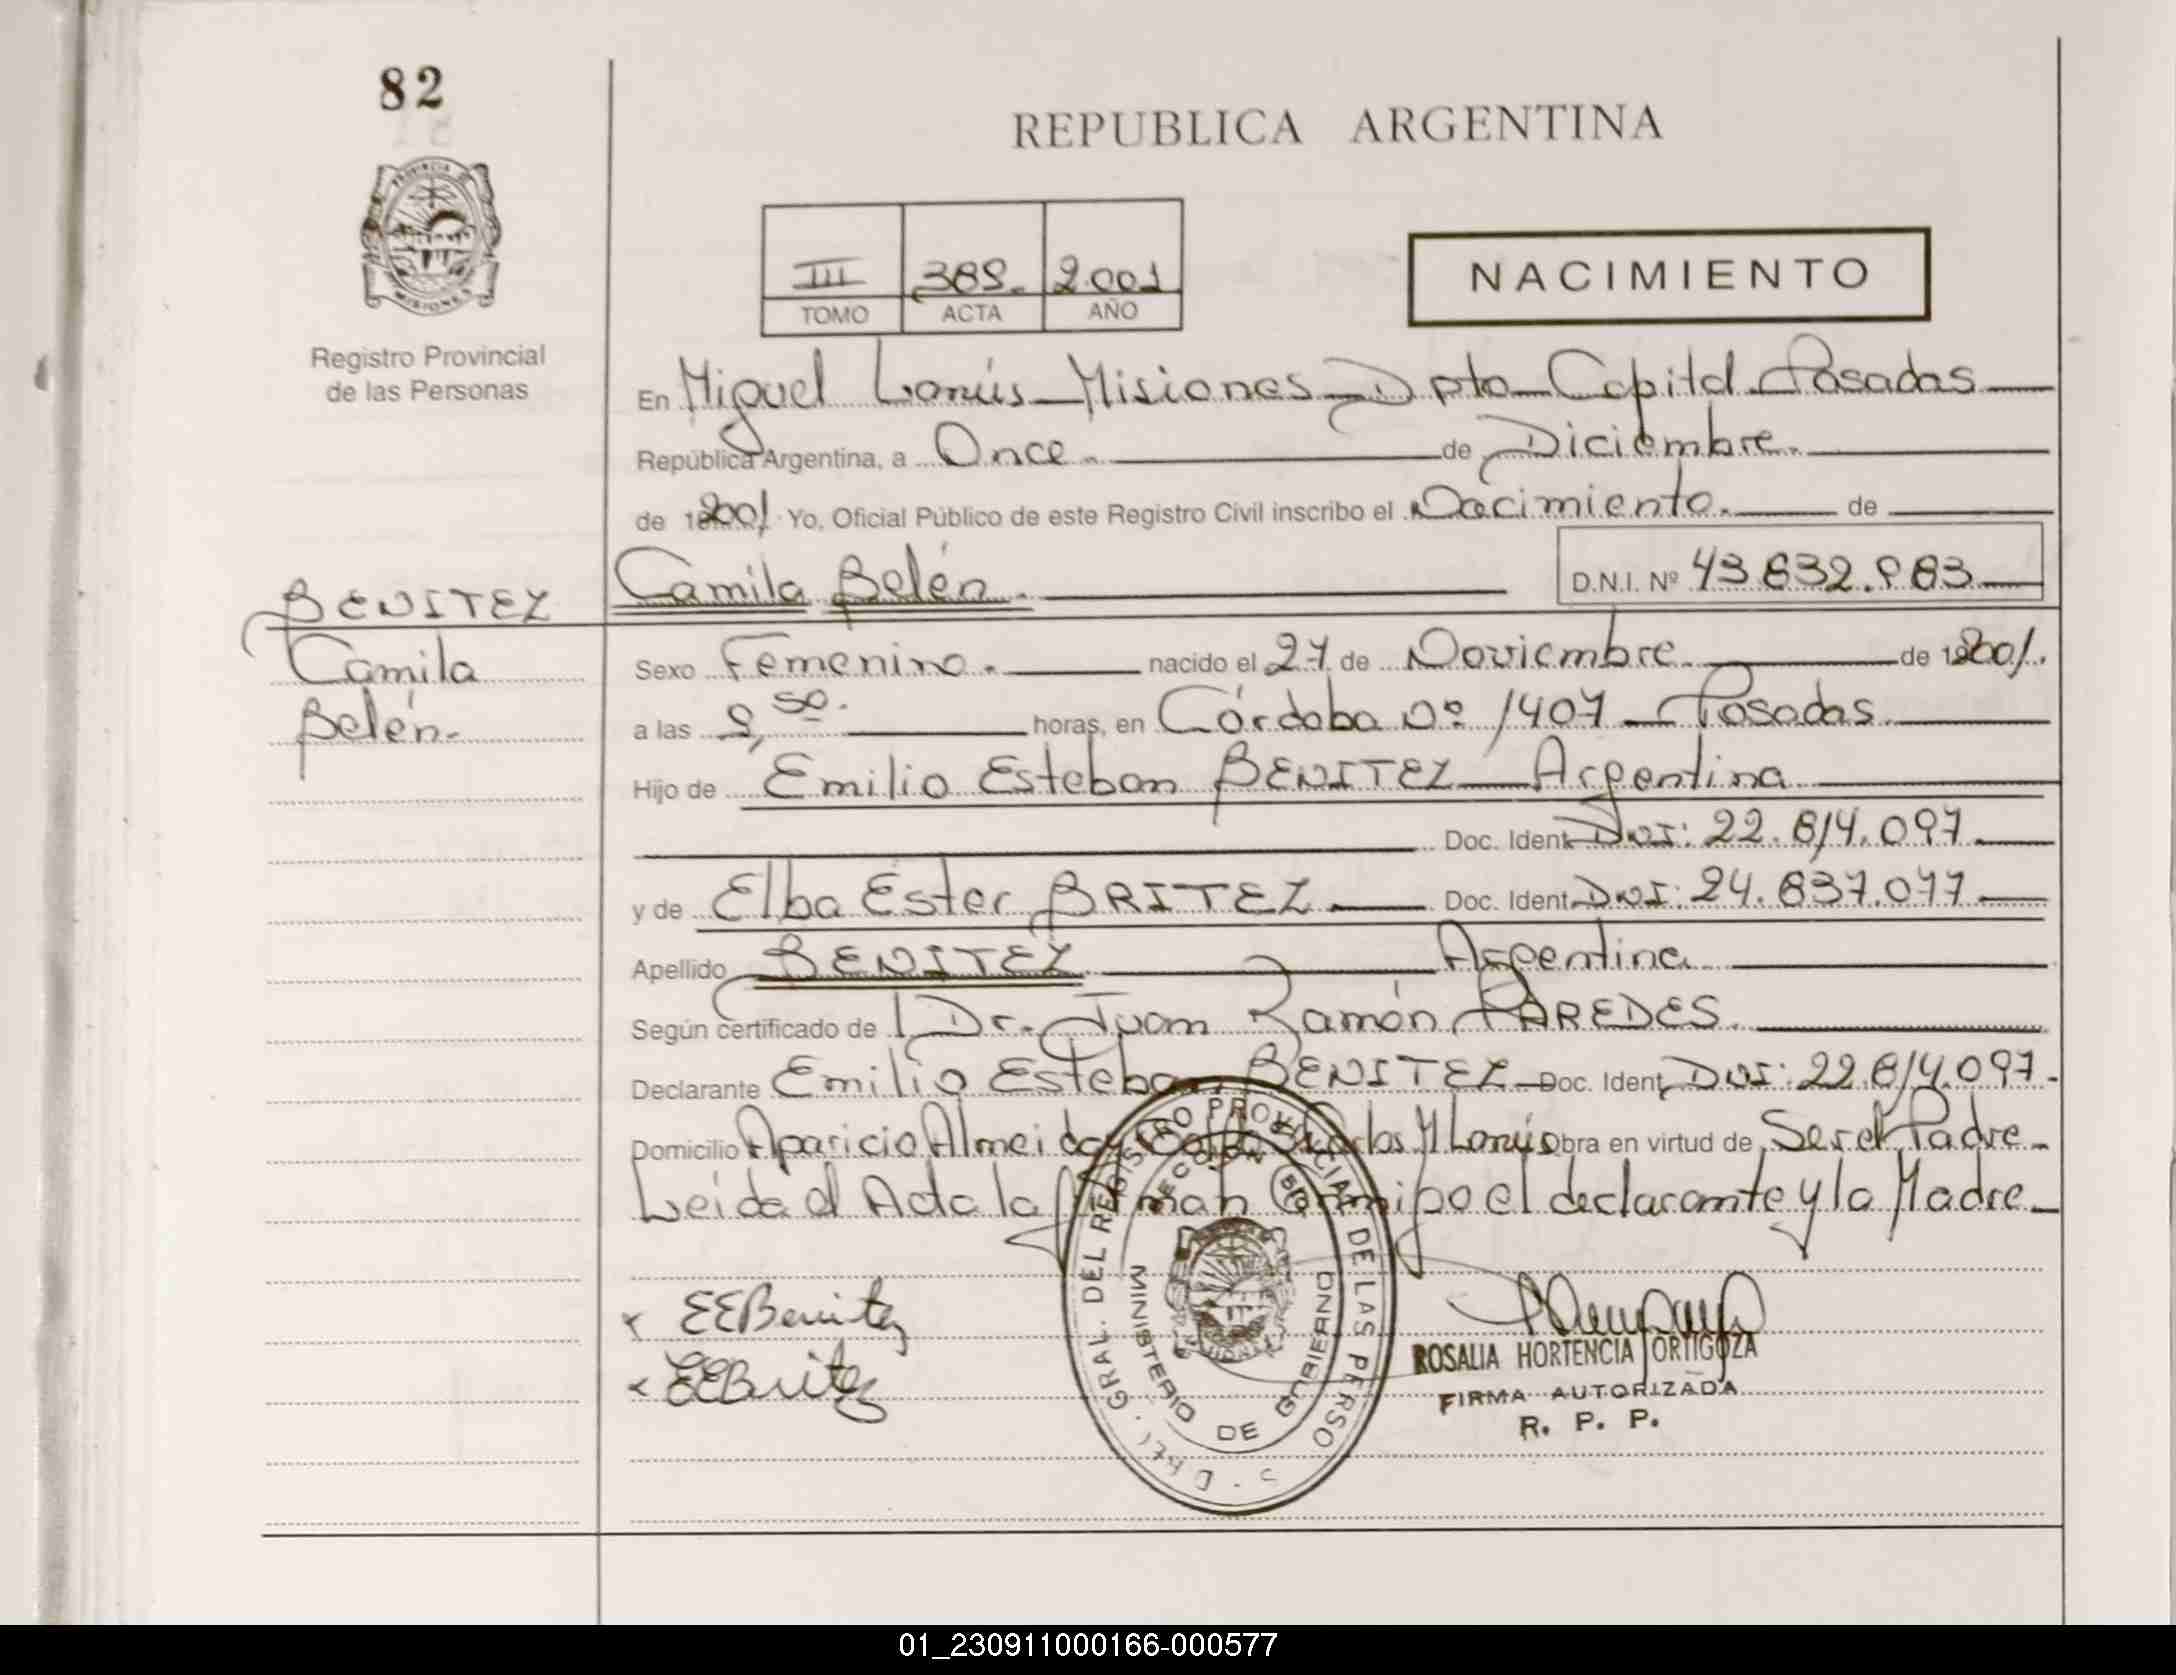 82
REPUBLICA ARGENTINA
PROVINCIA DE
MISIONES
III 389. 2.001
TOMO ACTA AÑO
NACIMIENTO
Registro Provincial
de las Personas
En Miguel Lanús - Misiones - Dpto Capital Posadas
República Argentina, a Once. de Diciembre.
de 2001. Yo, Oficial Público de este Registro Civil inscribo el Nacimiento. de
Camila Belén. D.N.I. Nº 43.832.983
BENITEZ
Camila
Belén.
Sexo Femenino. nacido el 27 de Noviembre de 2001.
a las 9,50. horas, en Córdoba Nº 1407 - Posadas
Hijo de Emilio Esteban BENITEZ - Argentina
Doc. Ident. DNI: 22.814.097
y de Elba Ester BRITEZ Doc. Ident. DNI: 24.837.077
Apellido BENITEZ Argentina
Según certificado de Dr. Juan Ramón PAREDES.
Declarante Emilio Esteban BENITEZ Doc. Ident. DNI: 22.814.097.
Domicilio Aparicio Almeida y M Lanús obra en virtud de Ser el Padre
Leida el Acta la Firman Conmigo el declarante y la Madre
EEBenitez
EEBritez
DREC. GRAL. DEL REGISTRO PROVINCIAL DE LAS PERSONAS
MINISTERIO DE GOBIERNO
ROSALIA HORTENCIA ORTIGOZA
FIRMA AUTORIZADA
R. P. P.
01_230911000166-000577